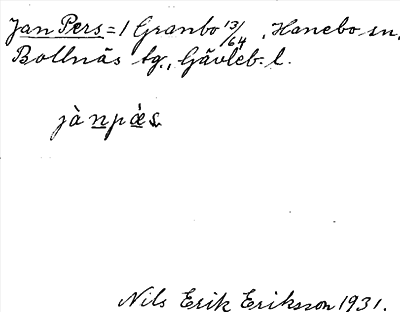 Jan Pers = 1 Granbo 13/64, Hanebo sn,
Bollnäs tg., Gävleb. l.
jànpæ̀s
Nils Erik Eriksson 1931.